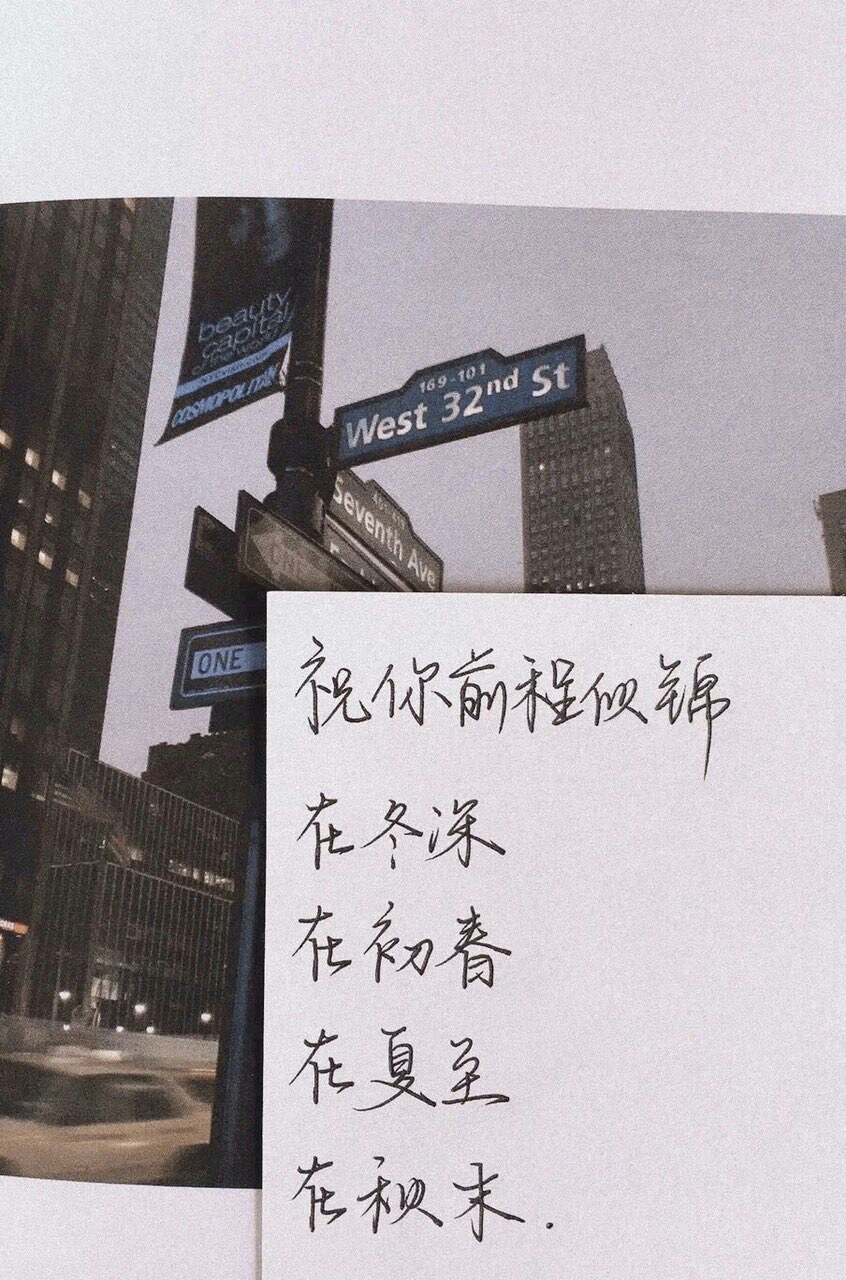 beauty
capital
of the world
NYCVISIT.COM
COSMOPOLITAN
169-101
West 32nd St
Seventh Ave
ONE
ONE
祝你前程似锦
在冬深
在初春
在夏至
在秋末.